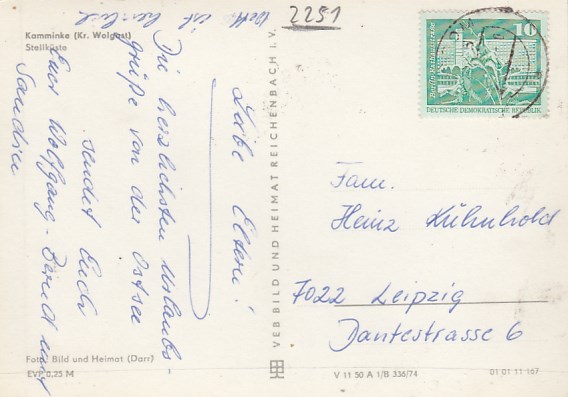 2251
Kamminke (Kr. Wolgast)
Steilküste
Liebe Eltern!
Die herzlichsten Urlaubs-
grüße von der Ostsee
sendet Euch
Euer Wolfgang - Bernd und
ist herrlich
VEB BILD UND HEIMAT REICHENBACH I. V.
10
Berlin, Rathausstraße
DEUTSCHE DEMOKRATISCHE REPUBLIK
Fam.
Heinz Kühnhold
7022 Leipzig
Dantestrasse 6
Foto: Bild und Heimat (Darr)
EVP 0,25 M
V 11 50 A 1/B 336/74
01 01 11 167